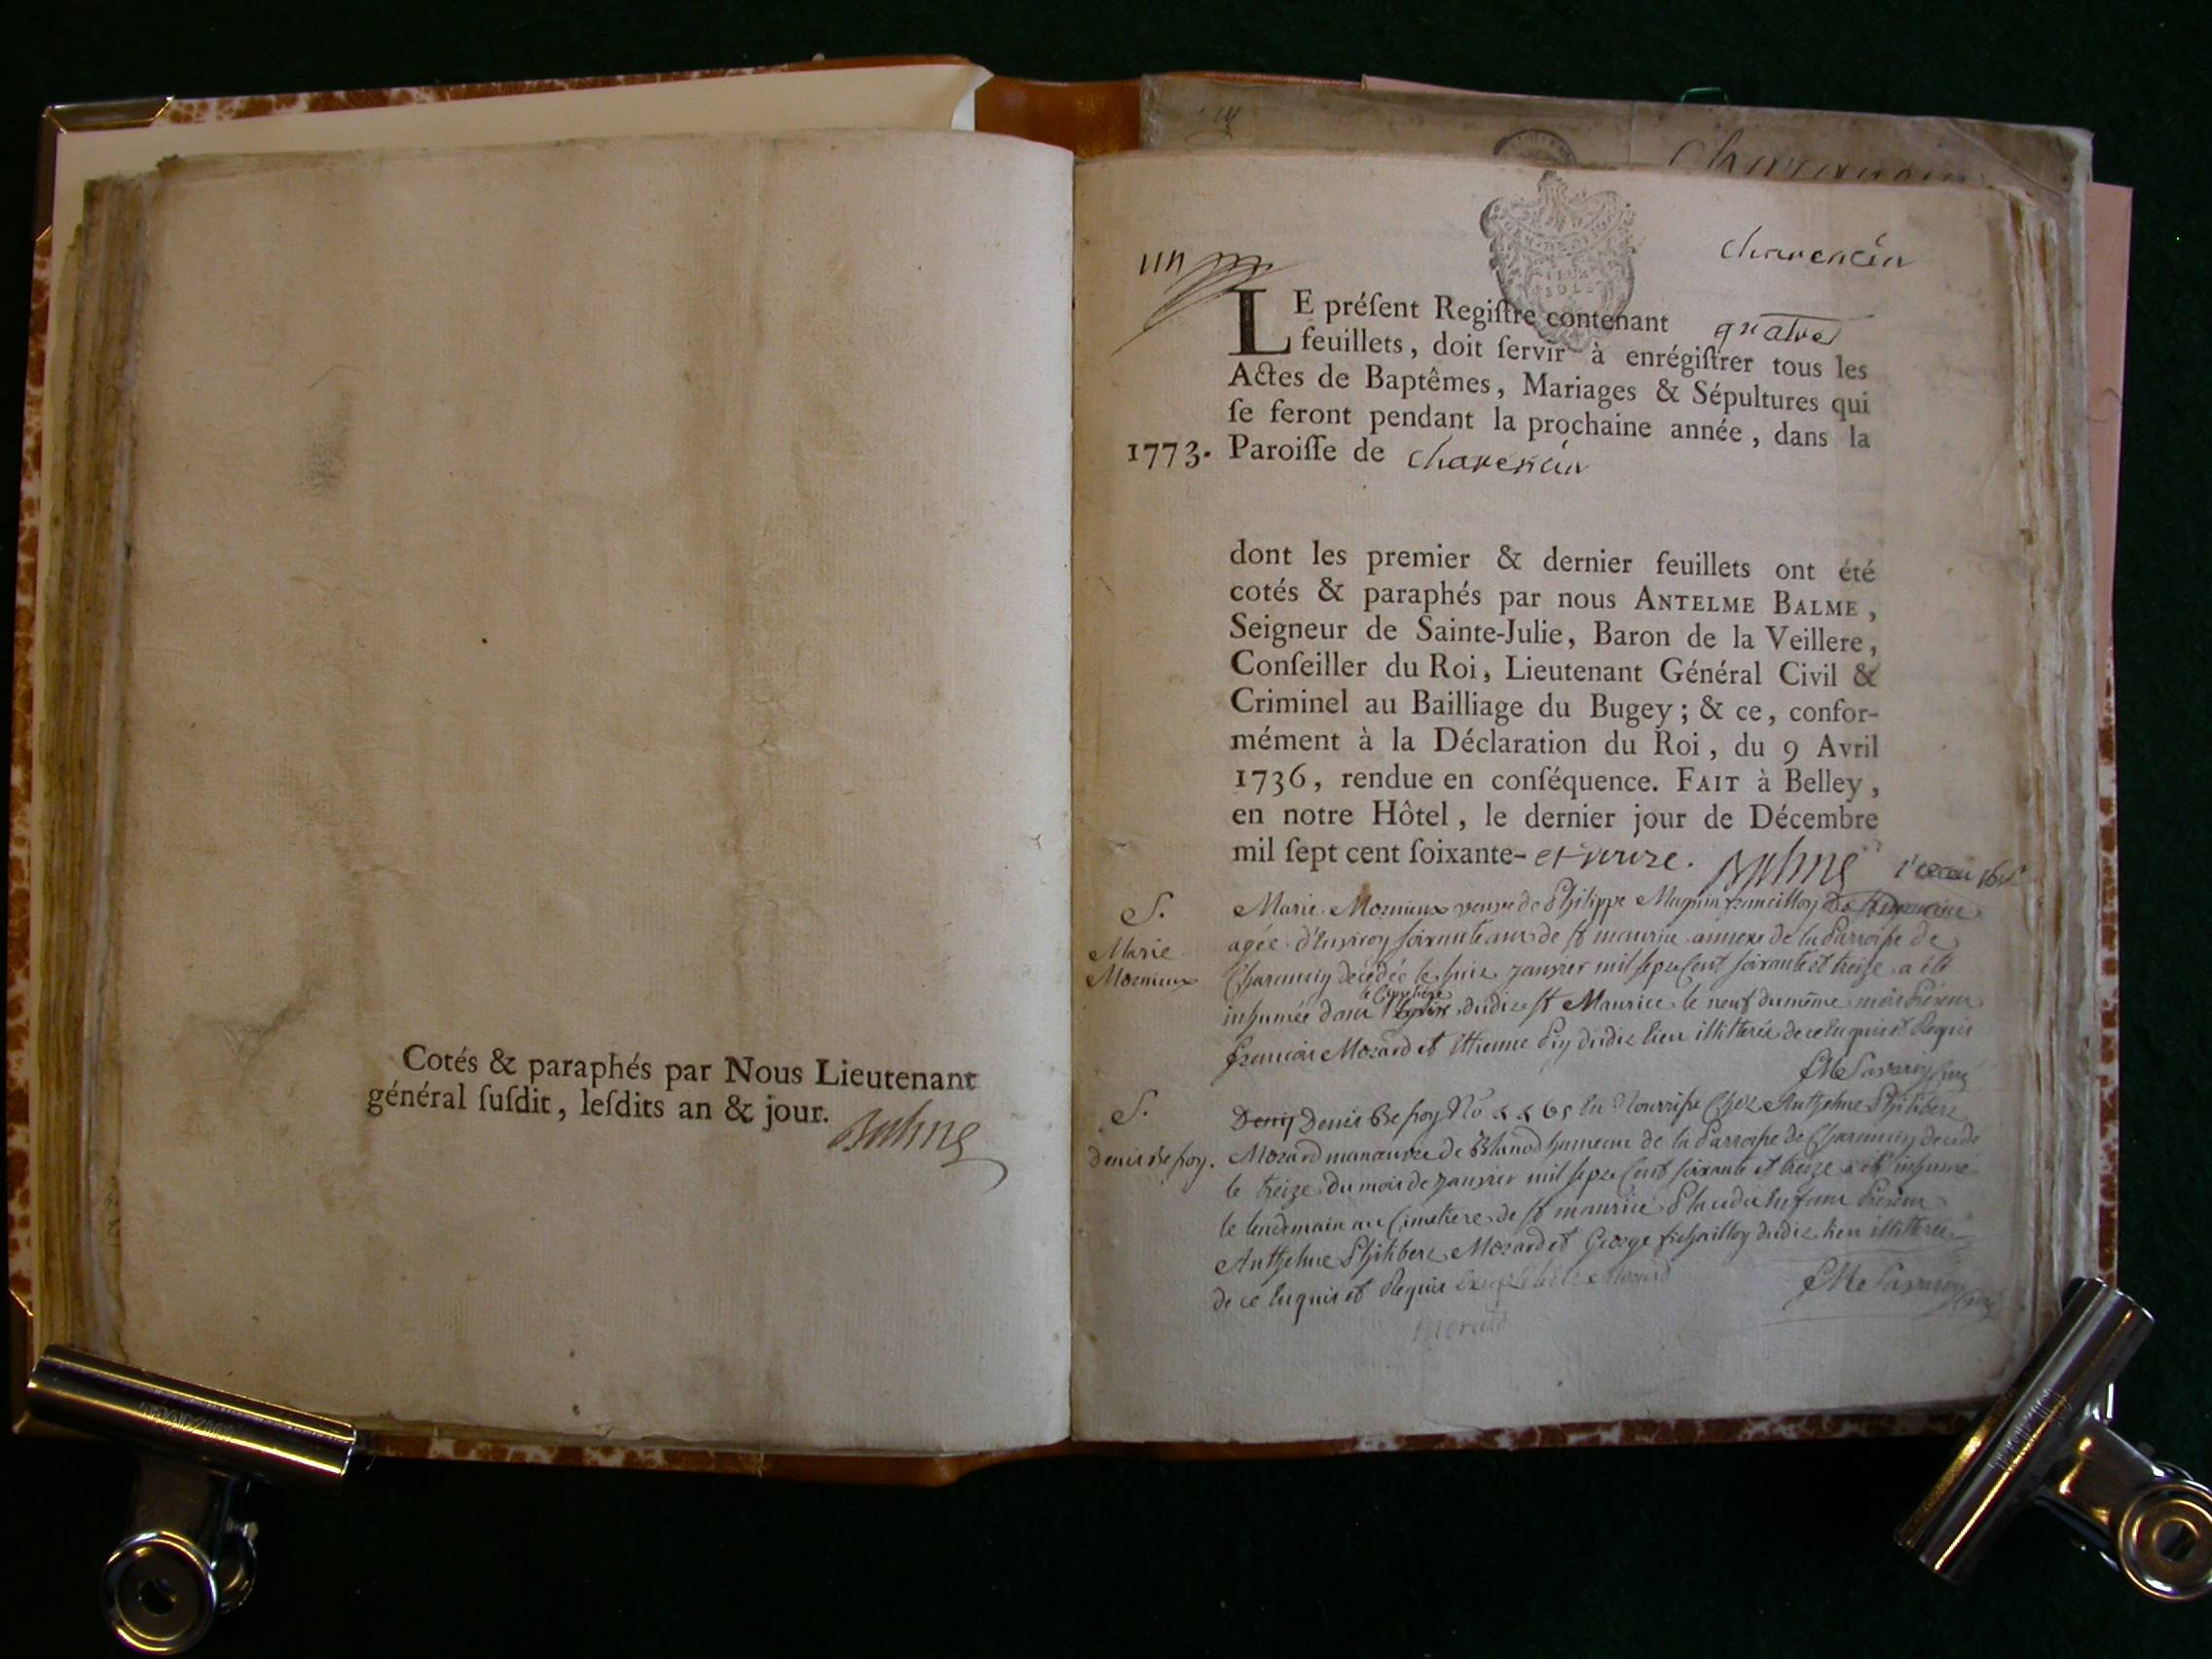 Cotés & paraphés par Nous Lieutenant
général ſuſdit, leſdits an & jour.
Balme
Charencin
un
LE préſent Regiſtre contenant quatre
feuillets, doit ſervir à enrégiſtrer tous les
Actes de Baptêmes, Mariages & Sépultures qui
ſe feront pendant la prochaine année, dans la
1773. Paroiſſe de charencin
dont les premier & dernier feuillets ont été
cotés & paraphés par nous ANTELME BALME,
Seigneur de Sainte-Julie, Baron de la Veillere,
Conſeiller du Roi, Lieutenant Général Civil &
Criminel au Bailliage du Bugey; & ce, confor-
mément à la Déclaration du Roi, du 9 Avril
1736, rendue en conſéquence. FAIT à Belley,
en notre Hôtel, le dernier jour de Décembre
mil ſept cent ſoixante- et douze. Balme
S.
Marie
Mornieux
Marie Mornieux veuve de Philippe Magnin francillon
agée d'Environ soixante ans de st maurice annexe de la Parroisse de
Charencin decedée le huit janvier mil sept Cent soixante et treize a été
inhumée dans le Cimetière dudit st Maurice le neuf du même mois Présens
françois Morard et Ettienne Pin dudit lieu illitterés de ce Enquis et Requis
Savarin Curé
S.
Denis Befroy.
Denis Befroy No en Nourrisse Chez Anthelme Philibert
Morard manœuvre de Blanod hameau de la Parroisse de Charencin decedé
le treize du mois de janvier mil sept Cent soixante et treize a été inhumé
le lendemain au Cimetiere de st maurice Présens
Anthelme Philibert Morard et George dudit lieu illitterés
de ce Enquis et Requis
Savarin Curé